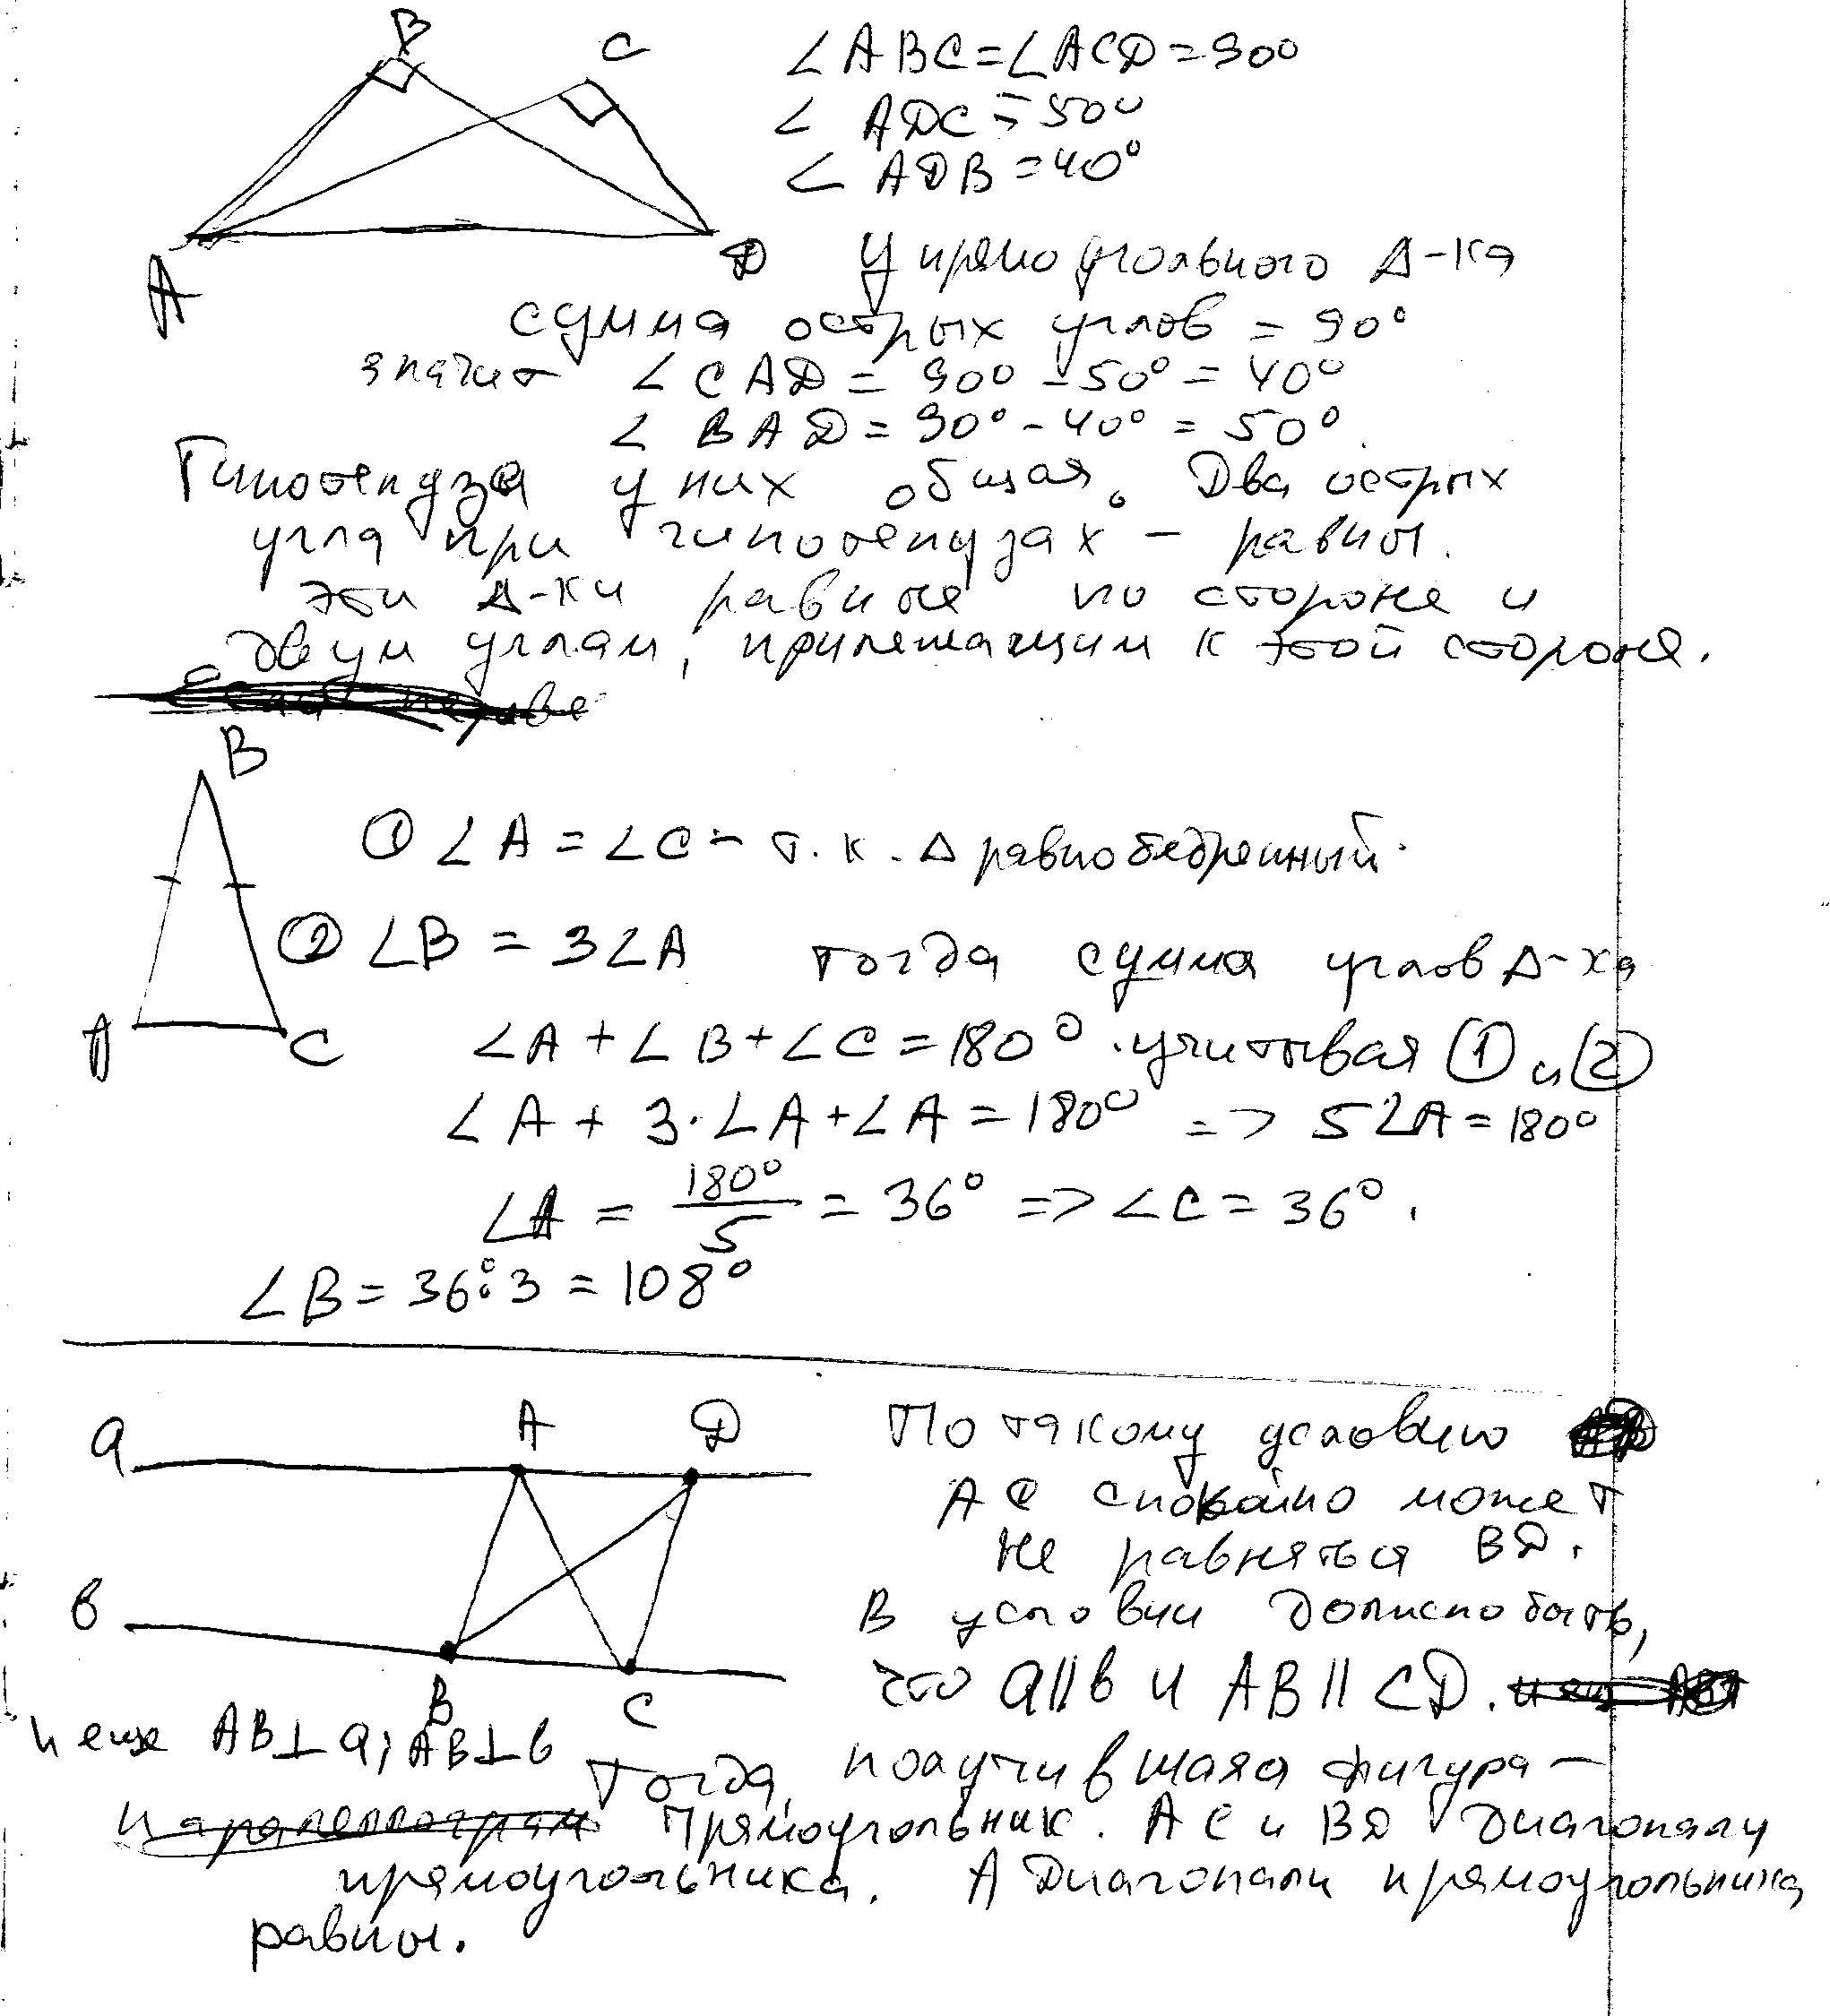 B
C
∠ABC=∠ACD=90°
∠ ADC=50°
∠ ADB=40°
A
D
У прямоугольного Δ-ка
сумма острых углов = 90°
значит ∠CAD = 90° - 50° = 40°
∠ BAD = 90° - 40° = 50°.
Гипотенуза у них общая. Два острых
угла при гипотенузах - равны.
эти Δ-ки равные по стороне и
двум углам, прилежащим к этой стороне.
B
① ∠A = ∠C - т.к. Δ равнобедренный.
② ∠B = 3∠A тогда сумма углов Δ-ка
A
C
∠A + ∠B + ∠C = 180°. учитывая ① и ②
∠A + 3·∠A + ∠A = 180° => 5∠A = 180°
∠A = 180°/5 = 36° => ∠C = 36°.
∠B = 36°:3 = 108°
a
A
D
По такому условию
AC спокойно может
не равняться BD.
в
В условии должно быть,
что a||в и AB || CD.
B
C
и еще AB⊥a, AB⊥в
Тогда, получившаяся фигура -
параллелограм Прямоугольник. AC и BD диагонали
прямоугольника. А Диагонали прямоугольника
равны.